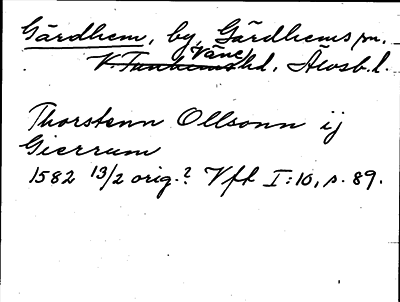 Gärdhem, by, Gärdhems sn.
Väne
V. Tunhems hd, Älvsb. l.
Thorstenn Ollsonn ij
Gierrum
1582 13/2 orig.? Vft I:10, s. 89.